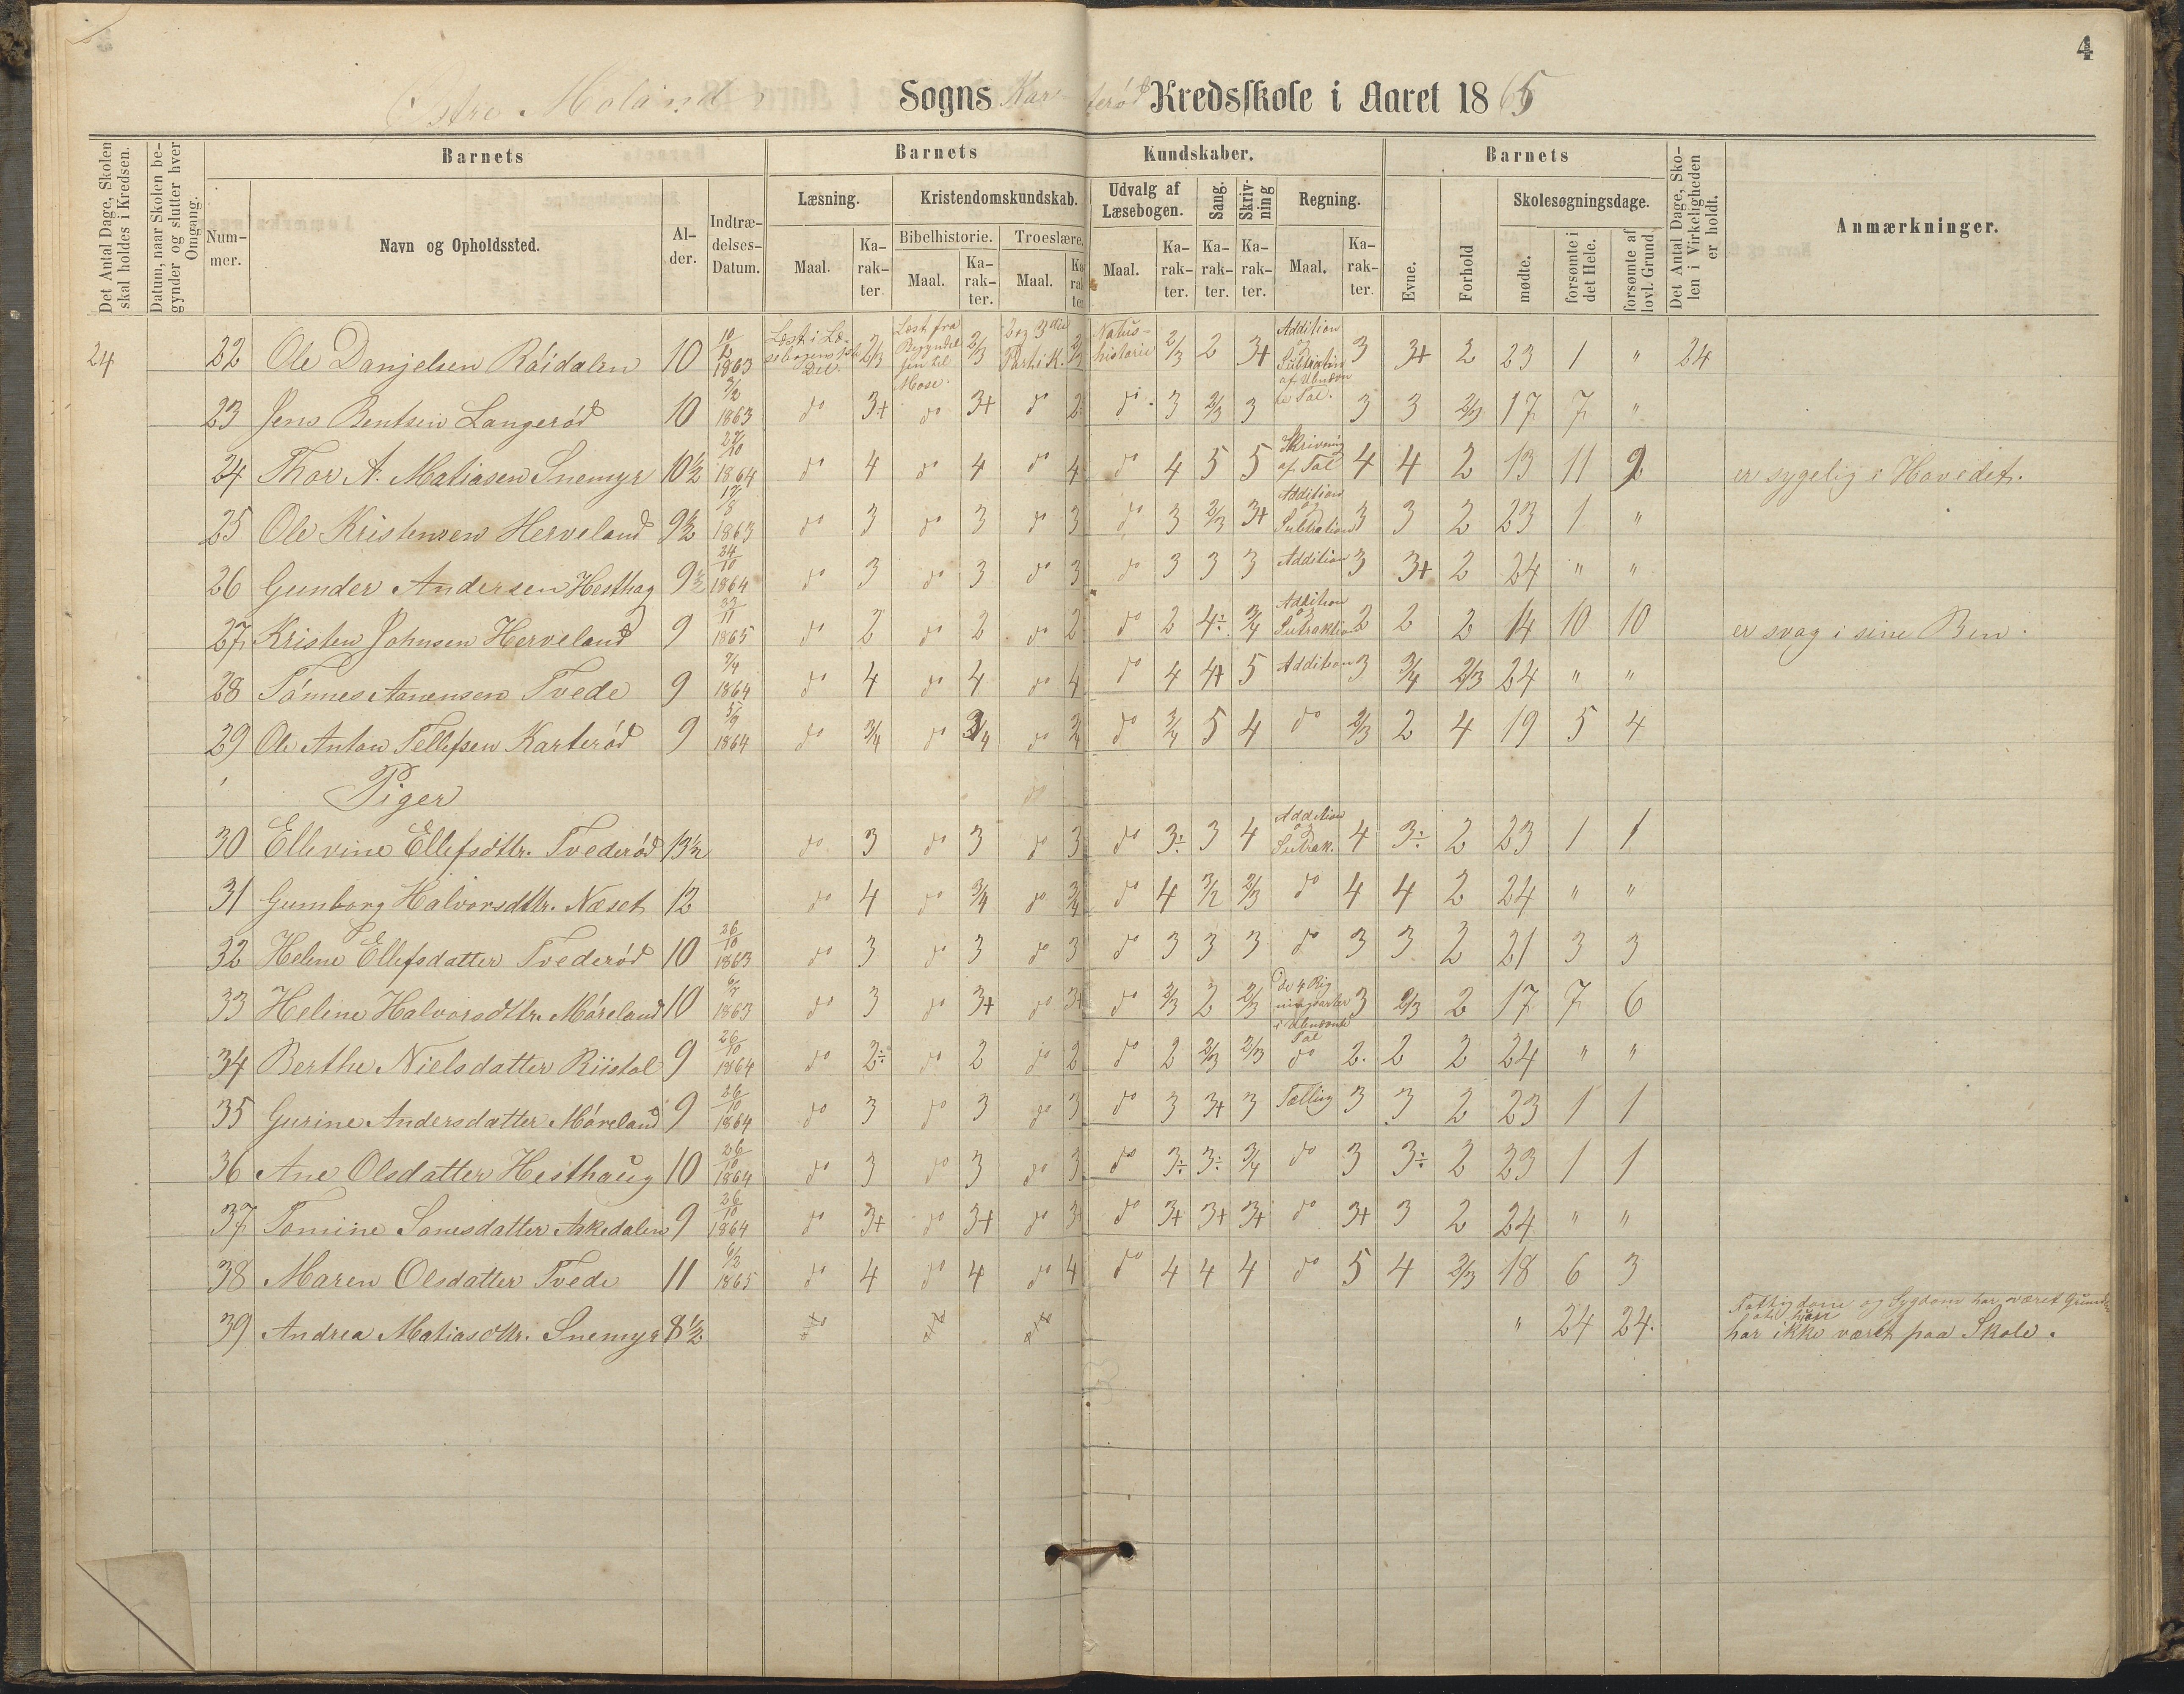 4
Østre Moland Sogns Karterød Kredsskole i Aaret 1865
Det Antal Dage, Skolen skal holdes i Kredsen.
Datum, naar Skolen begynder og slutter hver Omgang.
Barnets
Barnets
Kundskaber.
Barnets
Det Antal Dage, Skolen i Virkeligheden er holdt.
Anmærkninger.
Nummer.
Navn og Opholdssted.
Alder.
Indtrædelses-Datum.
Læsning.
Kristendomskundskab.
Udvalg af Læsebogen.
Sang.
Skrivning
Regning.
Evne.
Forhold
Skolesøgningsdage.
Bibelhistorie.
Troeslære.
Maal.
Karakter.
mødte.
forsømte i det Hele.
forsømte af lovl. Grund.
24 22 Ole Danjelsen Röidalen 10 1863 2/3 2/3 2/3 Naturhistorie 2/3 2 3+ Addition og Subtraktion 3 3+ 2 23 1 " 24
23 Jens Bentsen Langerød 10 1863 do 3+ do 3+ do do 3 2/3 3 3 3 2/3 17 7 "
24 Thor A. Matiasen Snemyr 10½ 27/10 1864 do 4 do 4 do 4 do 4 5 5 Skrivning af Tal 4 4 2 13 11 er sygelig i Hovedet.
25 Ole Kristensen Herveland 9½ 1863 do 3 do 3 do 3 do 3 2/3 3+ Addition og Subtration 3 3 2 23 1 "
26 Gunder Andersen Hesthag 9½ 24/10 1864 do 3 do 3 do 3 do 3 3 3 Addition 3 3+ 2 24 " "
27 Kristen Johnsen Herveland 9 1865 do 2 do 2 do 2 do 2 4÷ 3/4 Addition og Sutraktion 2 2 2 14 10 10 er svag i sine Ben.
28 Tönnes Aanensen Tvede 9 1864 do 4 do 4 do 4 do 4 4+ 5 Addition 3 3/4 2/3 24 " "
29 Ole Anton Tellefsen Karterød 9 1864 do 3/4 do 3/4 do 3/4 do 3/4 5 4 do 2/3 2 4 19 5 4
Piger
30 Ellevine Ellefsdttr. Tvederød 13½ do 3 do 3 do 3 do 3÷ 3 4 Addition og Sutrak. 4 3÷ 2 23 1 1
31 Gumborg Halvorsdttr. Næset 12 do 4 do 3/4 do 3/4 do 4 3/2 2/3 do 4 4 2 24 " "
32 Helene Ellefsdatter Tvederød 10 26/10 1863 do 3 do 3 do 3 do 3 3 3 do 3 3 2 21 3 3
33 Heline Halvorsdttr. Möreland 10 1863 do 3 do 3+ do 3+ do 2/3 2 2/3 de 4 Regningsarter i Ubenævnte Tal 3 2/3 2 17 7 6
34 Berthe Nielsdatter Riistol 9 26/10 1864 do 2÷ do 2 do 2 do 2 2/3 2/3 do 2. 2 2 24 " "
35 Gurine Andersdatter Möreland 9 26/10 1864 do 3 do 3 do 3 do 3 3+ 3 Tælling 3 3 2 23 1 1
36 Ane Olsdatter Hesthaug 10 26/10 1864 do 3 do 3 do 3 do 3÷ 3÷ 3/4 do 3 3÷ 2 23 1 1
37 Tomine Sanesdatter Askedalen 9 26/10 1864 do 3+ do 3+ do 3+ do 3+ 3+ 3+ do 3+ 3 2 24 " "
38 Maren Olsdatter Tvede 11 6/2 1865 do 4 do 4 do 4 do 4 4 4 do 5 4 2/3 18 6 3
39 Andrea Matiasdttr. Snemyr 8½ " 24 24. Fattigdom og Sygdom har været Grunden til hun
har ikke været paa Skole.